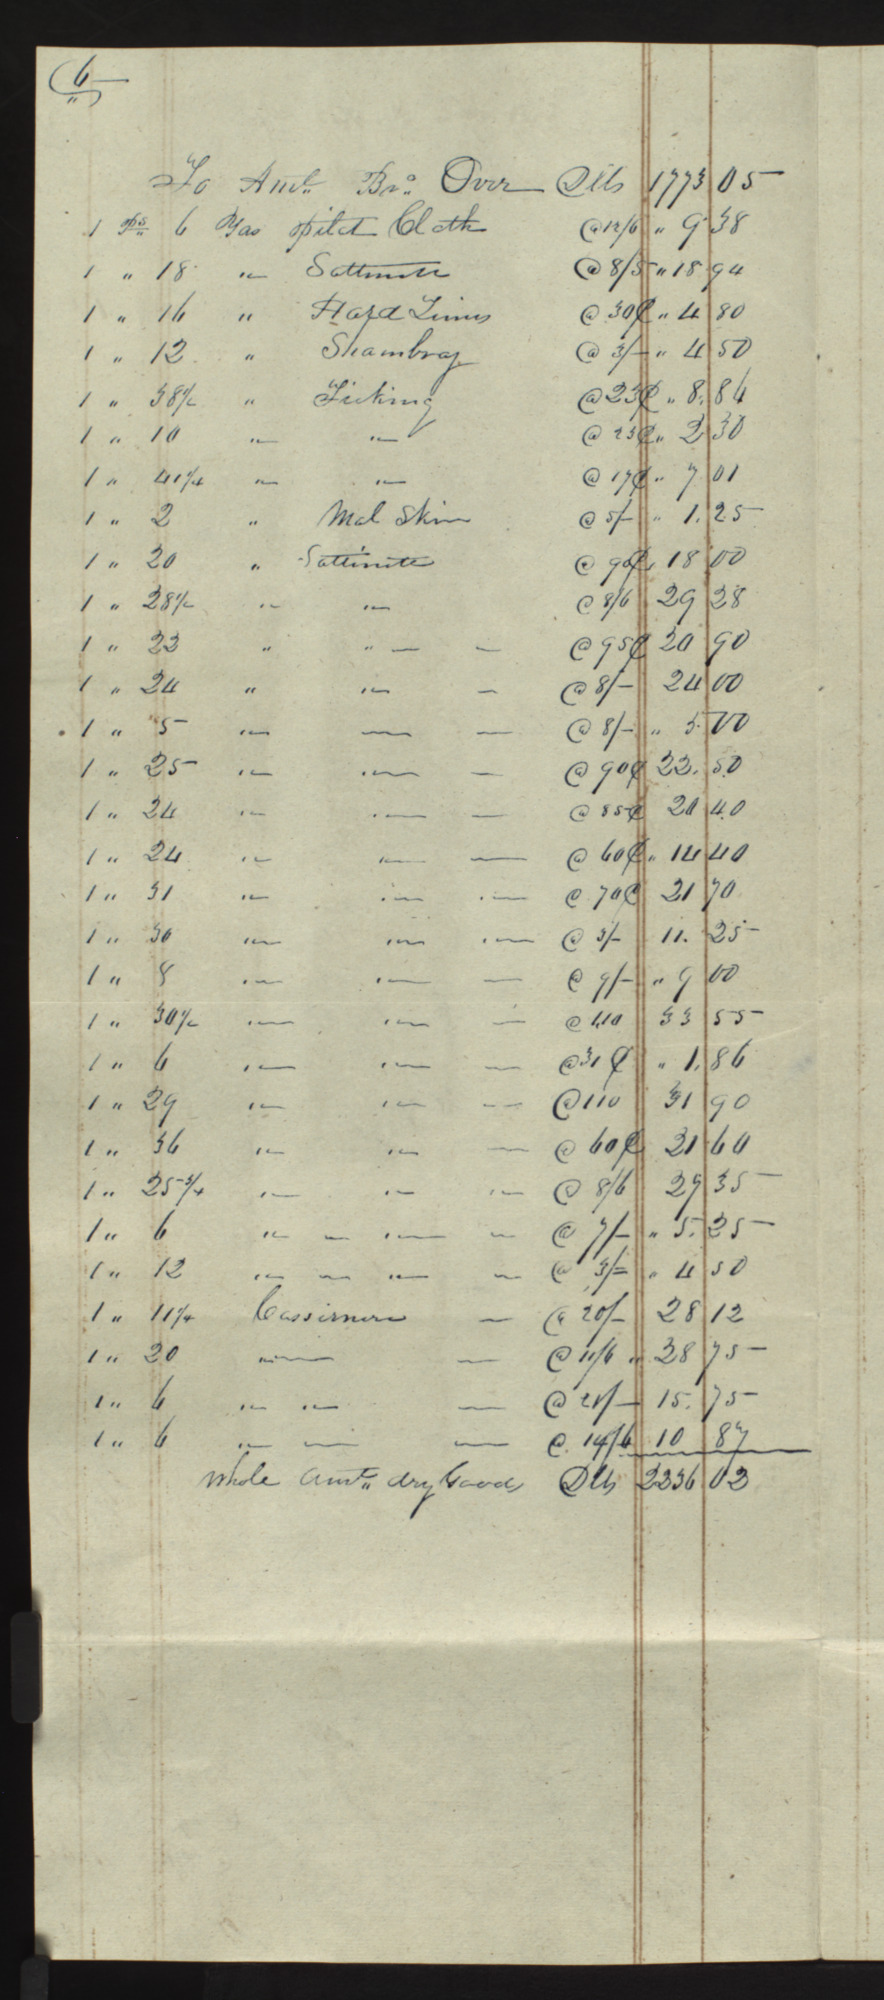 6
To Amt. Bro. Over Dlls 1773 05
1 ps 6 Yds pilot Cloth @ 12/6 " 9 38
1 " 18 " Sattinett @ 8/5 " 18 94
1 " 16 " Hard Times @ 30¢ " 4 80
1 " 12 " Shambray @ 3/- " 4 50
1 " 38½ " Ticking @ 23¢ " 8. 86
1 " 10 " " @ 23¢ " 2 30
1 " 41¼ " " @ 17¢ " 7 01
1 " 2 " Mol Skin @ 5/- " 1. 25
1 " 20 " Sattinette @ 90¢ 18 00
1 " 28½ " " @ 8/6 29 28
1 " 22 " " @ 95¢ 20 90
1 " 24 " " @ 8/- 24 00
1 " 5 " " @ 8/- " 5. 00
1 " 25 " " @ 90¢ 22. 50
1 " 24 " " @ 85¢ 20 40
1 " 24 " " @ 60¢ " 14 40
1 " 31 " " " @ 70¢ 21 70
1 " 30 " " " @ 3/- 11. 25
1 " 8 " " @ 9/- " 9 00
1 " 30½ " " " @ 1,10 33 55
1 " 6 " " @ 31¢ " 1. 86
1 " 29 " " " @ 110 31 90
1 " 36 " " @ 60¢ 21 60
1 " 25¾ " " " @ 8/6 29 35
1 " 6 " " " @ 7/- " 5. 25
1 " 12 " " " @ 3/- " 4 50
1 " 11¼ Cassimere @ 20/- 28 12
1 " 20 " @ 11/6 " 28 75
1 " 6 " " @ 21/- 15. 75
1 " 6 " " @ 14/6 10 87
Whole Amt. dry Goods Dlls 2236 02